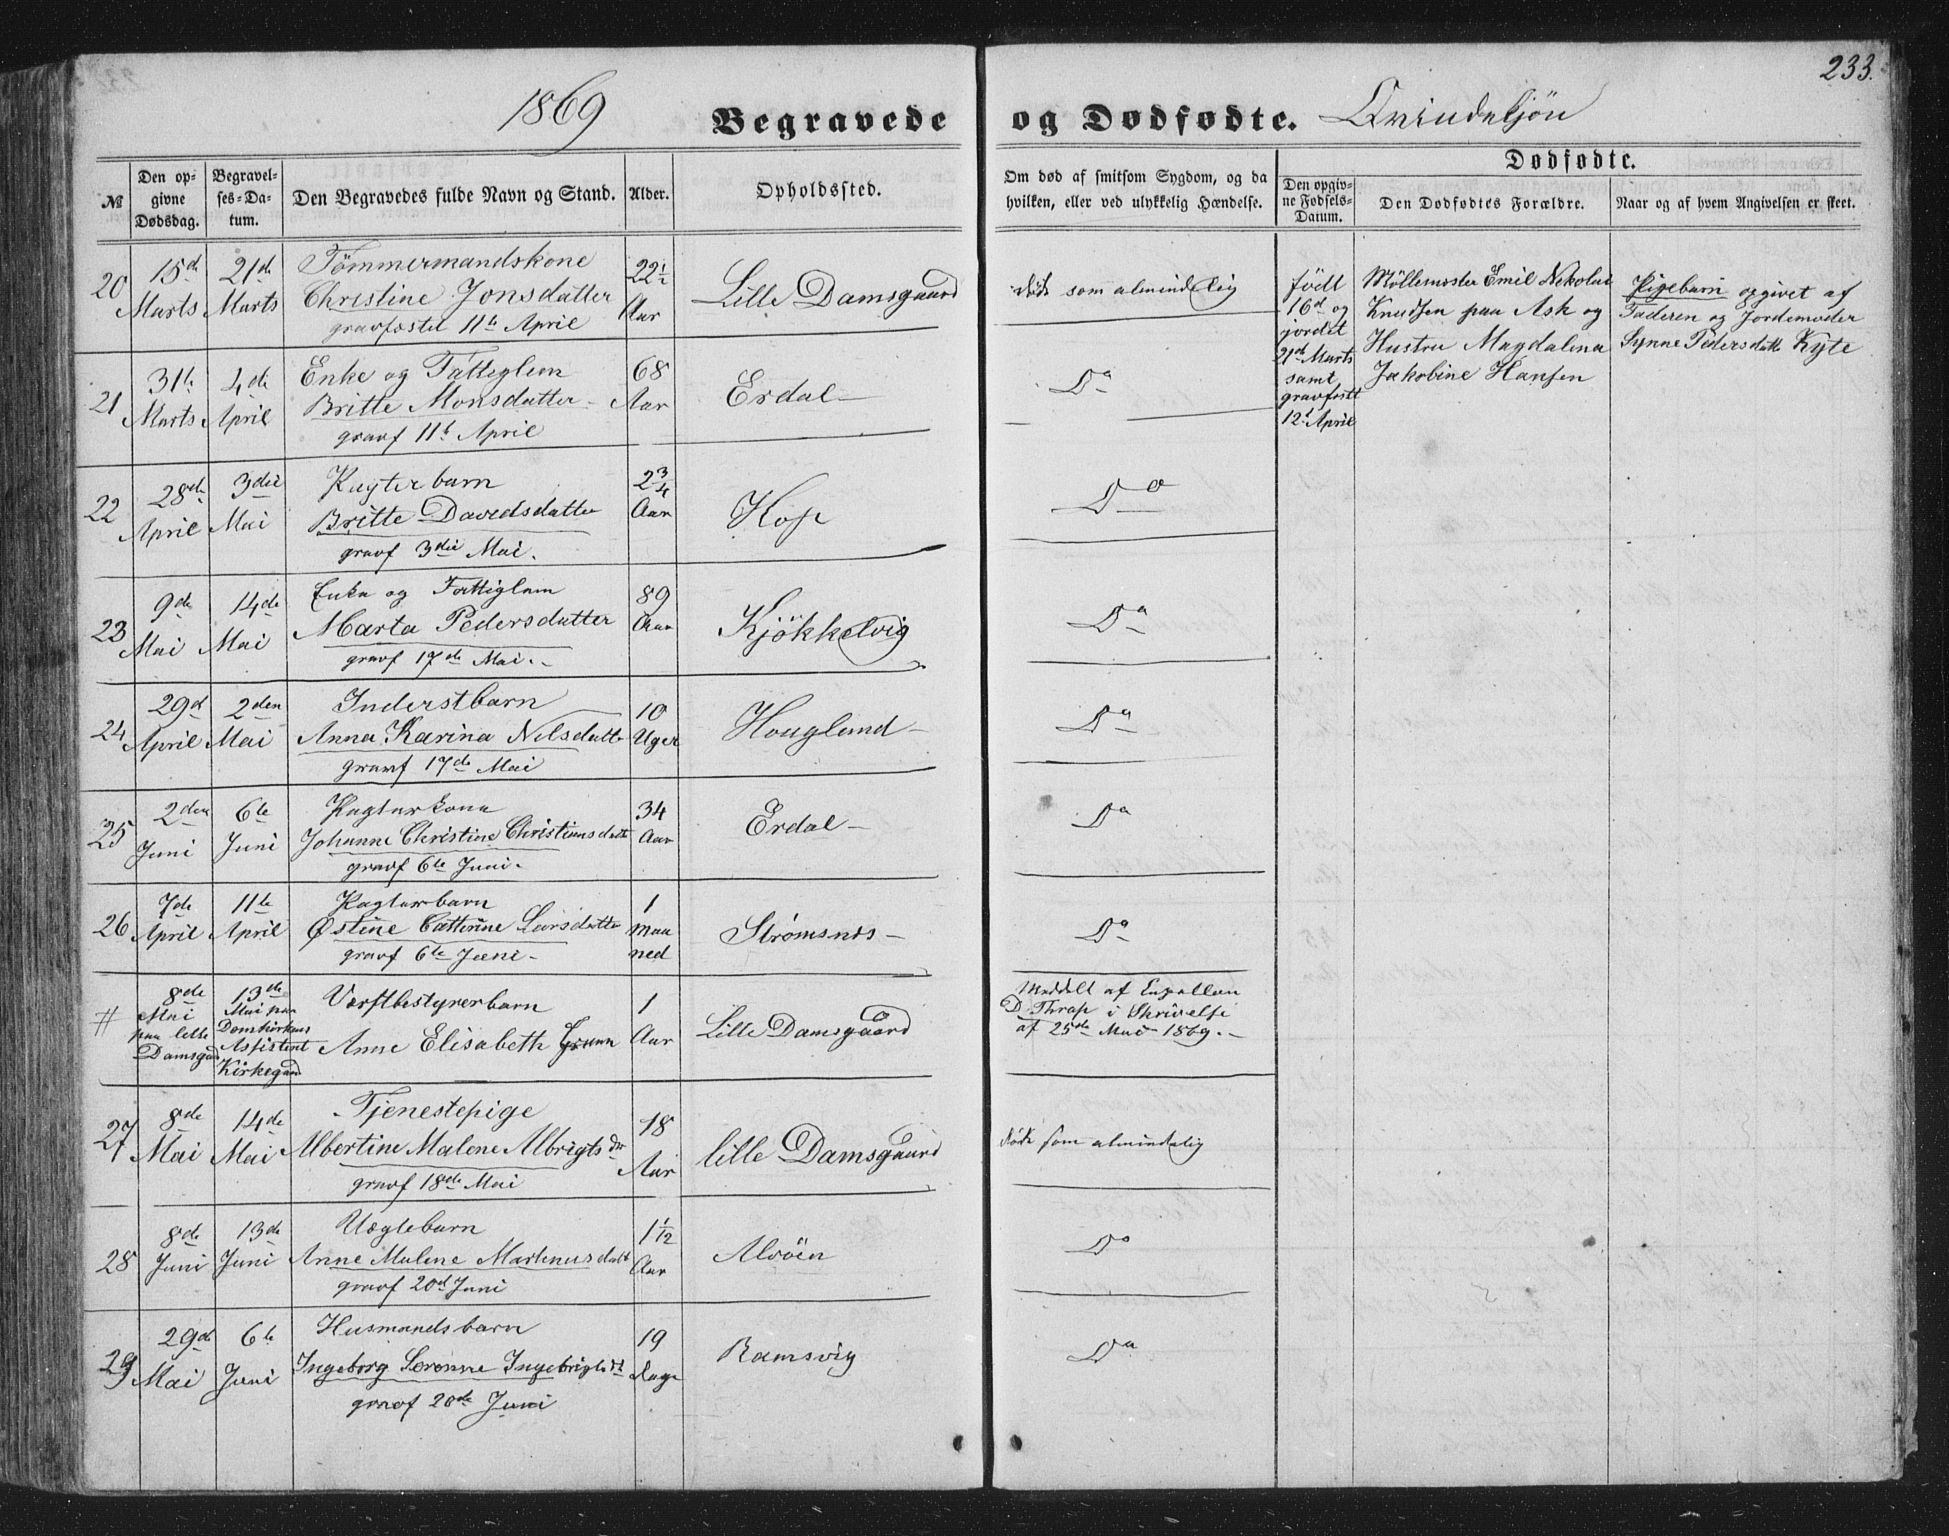 233.
1869 Begravede og Dødfødte. Qvindekjön
№
Den op-
givne
Dødsdag.
Begravel-
ses-Da-
tum.
Den Begravedes fulde Navn og Stand.
Alder.
Opholdssted.
Om død af smitsom Sygdom, og da
hvilken, eller ved ulykkelig Hændelse.
Dødfødte.
Den opgiv-
ne Fødsels-
Datum.
Den Dødfødtes Forældre.
Naar og af hvem Angivelsen er skeet.
20
15de
Marts
21de
Marts
Tömmermandskone
Christine Jonsdatter
gravfæstet 11te April
22½
Aar
Lille Damsgaard
död som almindelig
födt
16d og
jordet
21d Marts
samt
gravfæstt
12t April
Möllemester Emil Nikolai
Knudsen paa Ask og
Hustru Magdalena
Jakobine Hansen
Pigebarn opgivet af
Faderen og Jordemoder
Synne Pedersdatt Kyte
21
31te
Marts
4de
April
Enke og Fattiglem
Britte Monsdatter
gravf 11t April
68
Aar
Erdal
Do
22
28de
April
3die
Mai
Britte Davidsdatter
gravf 3die Mai.
2¾
Aar
Hop
Do
23
9de
Mai
14de
Mai
Enke og Fattiglem
Marta Pedersdatter
gravf 17de Mai.
89
Aar
Kjökkelvig
Do
24
29d
April
2den
Mai
Inderstbarn
Anna Karina Nilsdatt
gravf 17de Mai
10
Uger
Houglund
Do
25
2den
Juni
6te
Juni
Johanne Christine Christiansdatt
gravf 6te Juni.
34
Aar
Erdal
Do
26
7de
April
11te
April
Østine Cattrine Larsdatter
gravf 6te Juni
1
Maa
ned
Strømsnes
Do
#
8de
Mai
paa lille
Damsgard
13de
Mai paa
Domkirkens
Assistent
Kirkegard
Værftbestyrerbarn
Anne Elisabeth
1
Aar
Lille Damsgaard
Meddelt af Capellan
D. Thrap i Skrivelse
af 25de Mai 1869.
27
8de
Mai
14de
Mai
Tjenestepige
Albertine Malene Albrigtsdtr
gravf 18de Mai
18
Aar
lille Damsgaard
död som almindelig
28
8de
Juni
13de
Juni
Uægtebarn
Anne Malene Martinusdatt
gravf 20d Juni
1 1/12
Aar
Alvöen
Do
29
29de
Mai
6te
Juni
Husmandsbarn
Ingeborg Serenne Ingebrigtsdt
gravf 20de Juni
19
Dage
Ramsvig
Do